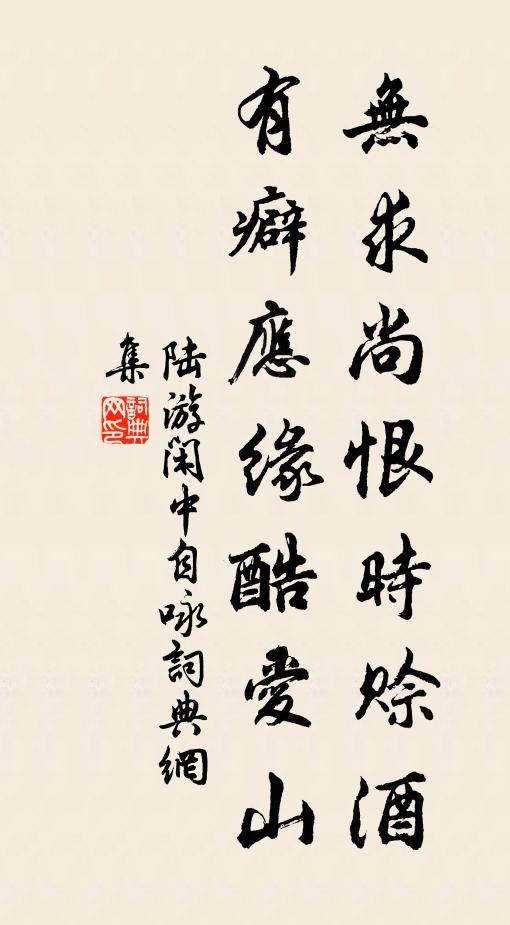 無求尚恨時賒酒
有癖應緣酷愛山
陆游闲中自咏詞典網
集
詞典
网印